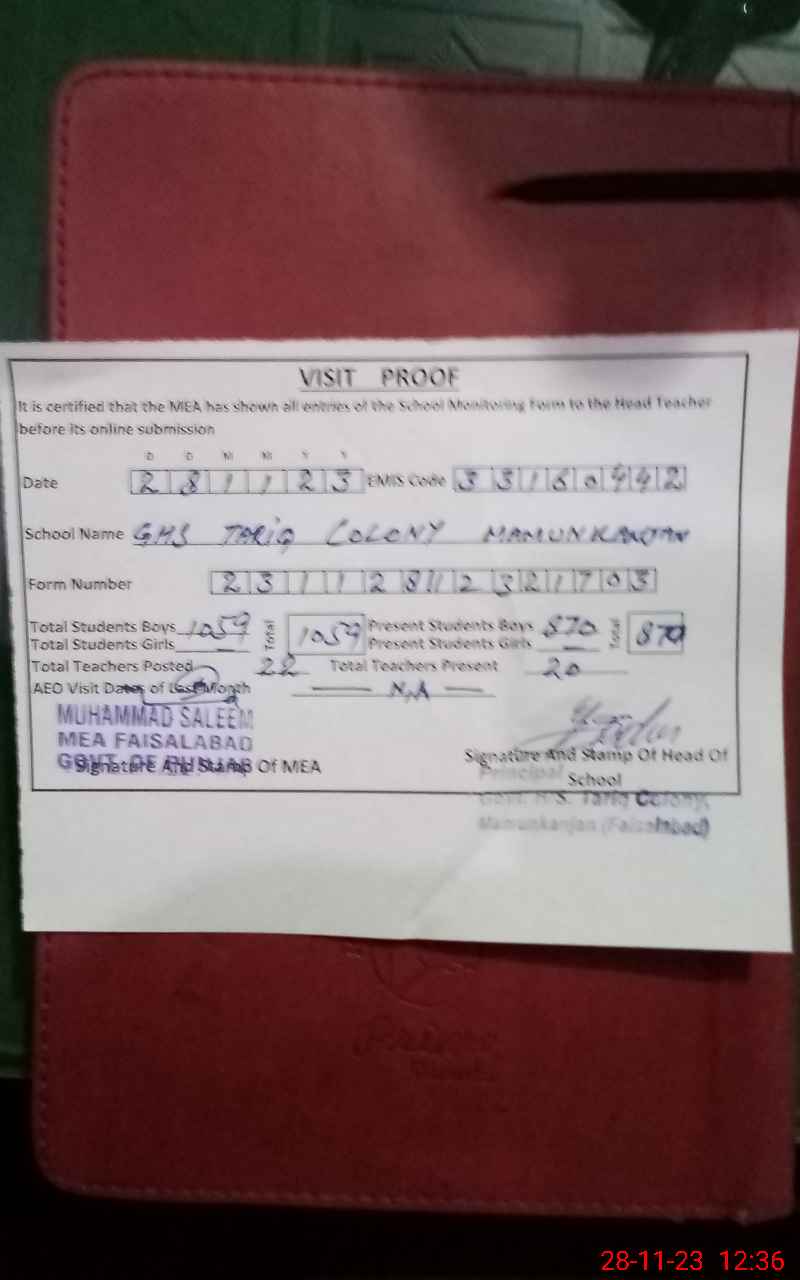 VISIT PROOF
It is certified that the MEA has shown all entries of the School Monitoring Form to the Head Teacher
before its online submission
D D M M Y Y
Date 281123 EMIS Code 33160442
School Name GHS TARIQ COLONY MAMUNKANJAN
Form Number
Total Students Boys 1059 Total 1059 Present Students Boys 870 Total 870
Total Students Girls — Present Students Girls —
Total Teachers Posted 22 Total Teachers Present 20
AEO Visit Dates of Last Month — N,A —
MUHAMMAD SALEEM
MEA FAISALABAD
GOVT. OF PUNJAB
Signature And Stamp Of MEA
Signature And Stamp Of Head Of
School
Principal
Govt. H/S. Tariq Colony,
Mamunkanjan (Faisalabad)
28-11-23 12:36